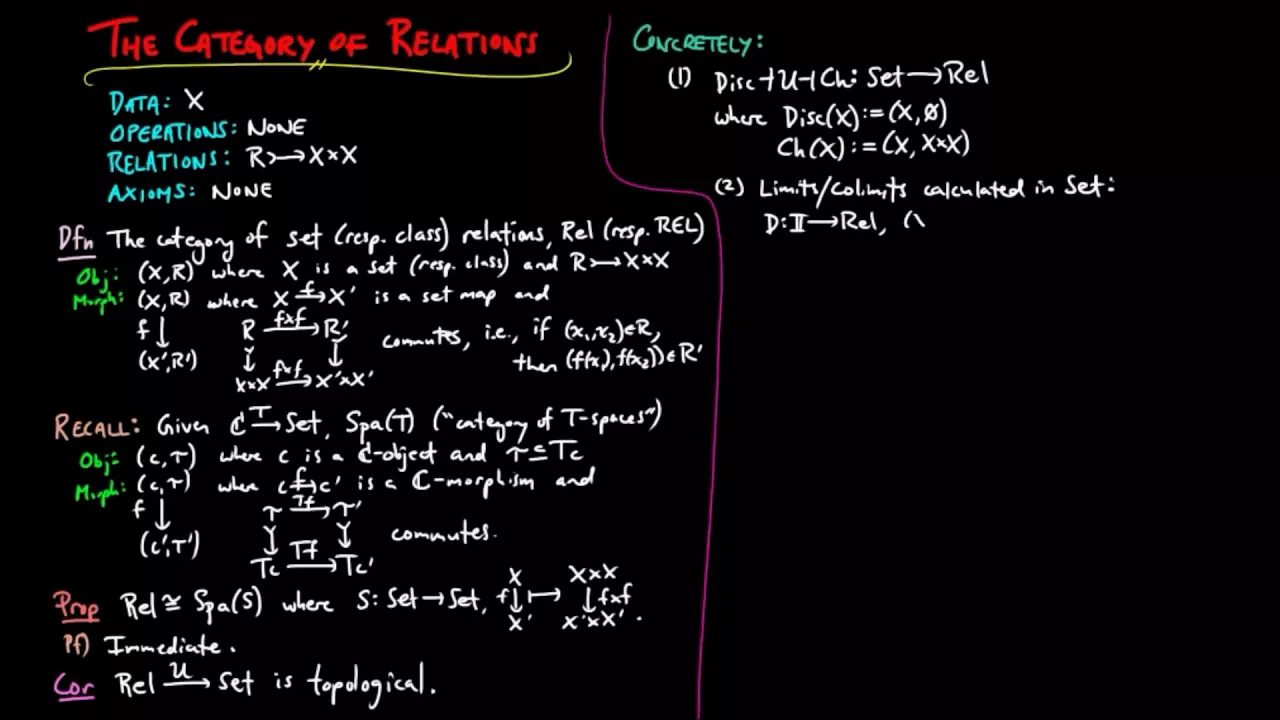 THE CATEGORY OF RELATIONS
DATA: X
OPERATIONS: NONE
RELATIONS: R↣X×X
AXIOMS: NONE
Dfn The category of set (resp. class) relations, Rel (resp. REL)
Obj: (X,R) where X is a set (resp. class) and R↣X×X
Morph: (X,R) where X -f→ X' is a set map and
f↓ R -f×f→ R' commutes, i.e., if (x₁,x₂)∈R,
(X',R') then (f(x₁),f(x₂))∈R'
X×X -f×f→ X'×X'
RECALL: Given ℂ -T→ Set, Spa(T) ("category of T-spaces")
Obj: (c,τ) where c is a ℂ-object and τ⊆Tc
Morph: (c,τ) where c -f→ c' is a ℂ-morphism and
f↓ τ -Tf→ τ'
(c',τ') commutes.
Tc -Tf→ Tc'
X X×X
Prop Rel≅Spa(S) where S: Set→Set, f↓ ↦ ↓f×f
X' X'×X'.
Pf) Immediate.
Cor Rel -U→ Set is topological.
CONCRETELY:
(1) Disc⊣U⊣Ch: Set→Rel
where Disc(X):=(X,∅)
Ch(X):=(X,X×X)
(2) Limits/Colimits calculated in Set:
D:𝕀→Rel, (